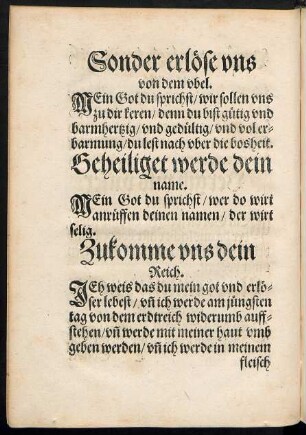 Sonder erlöse vns
von dem vbel.
MEin Got du sprichst/ wir sollen vns
zu dir keren/ denn du bist gütig vnd
barmhertzig/ vnd gedültig/ vnd vol er-
barmung/ du lest nach vber die bosheit.
Geheiliget werde dein
name.
MEin Got du sprichst/ wer do wirt
anrüffen deinen namen/ der wirt
selig.
Zukomme vns dein
Reich.
JEh weis das du mein got vnd erlö-
ser lebest/ vn̄ ich werde am jüngsten
tag von dem erdtreich widerumb auff-
stehen/ vn̄ werde mit meiner haut vmb
geben werden/ vn̄ ich werde in meinem
fleisch